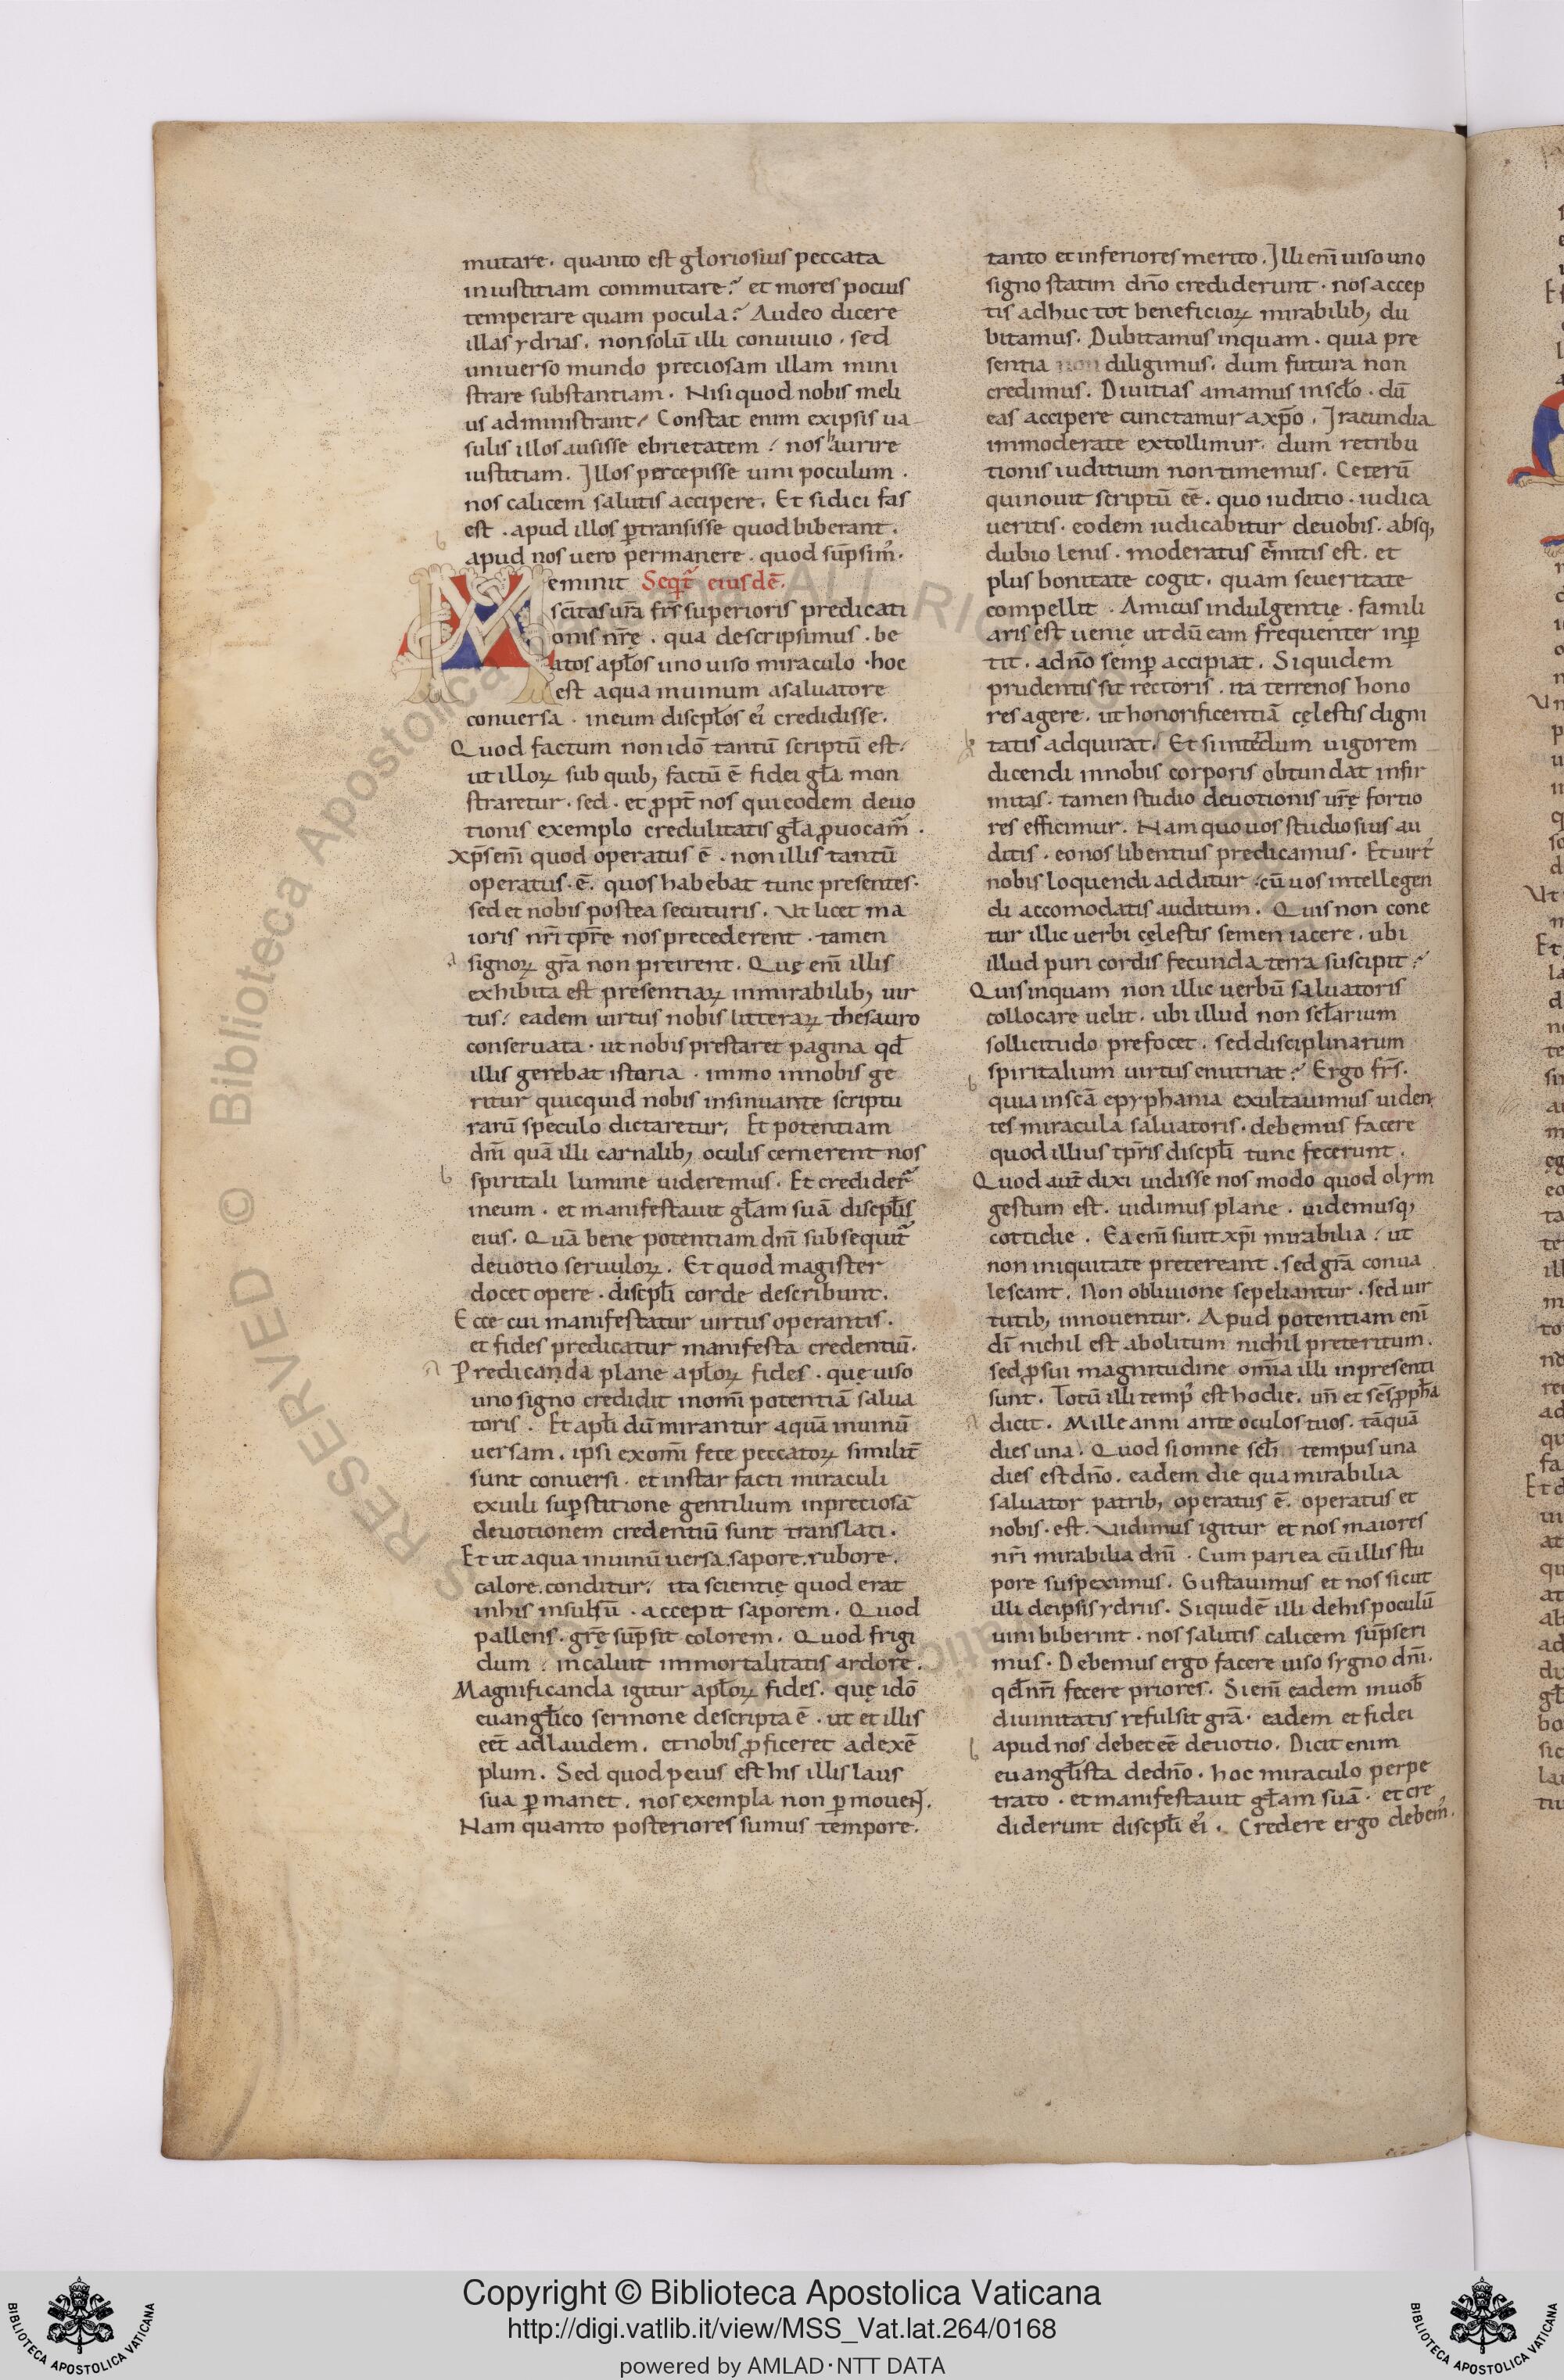 mutare. quanto est gloriosius peccata
iniustitiam commutare? et mores pocius
temperare quam pocula? Audeo dicere
illas ydrias. non solū illi conuiuio. sed
uniuerso mundo preciosam illam mini
strare substantiam. Nisi quod nobis meli
us administrant. Constat enim ex ipsis ua
sulis illos ausisse ebrietatem. nos haurire
iustitiam. Illos percepisse uini poculum.
nos calicem salutis accipere. Et si dici fas
est. apud illos ꝑtransisse quod biberant.
apud nos uero permanere. quod sūpsim᷒.
Meminit Seqt̄ eiusdē.
scītas ur̄a fr̄s superioris predicati
onis nr̄ę. qua descripsimus. be
atos apłos uno uiso miraculo. hoc
est aqua in uinum a saluatore
conuersa. in eum discipłos ei᷒ credidisse.
Quod factum non idō tantū scriptū est.
ut illoꝝ sub quib; factū ē fidei gła mon
straretur. sed. et ꝓpt̄ nos qui eodem deuo
tionis exemplo credulitatis gła ꝓuocam̄.
Xp̄s em̄ quod operatus ē. non illis tantū
operatus. ē. quos habebat tunc presentes.
sed et nobis postea secuturis. Ut licet ma
ioris nr̄i tp̄re nos precederent. tamen
signoꝝ gr̄a non preirent. Quę em̄ illis
exhibita est presentiaꝝ in mirabilib; uir
tus. eadem uirtus nobis litteraꝝ thesauro
conseruata. ut nobis prestaret pagina qđ
illis gerebat istoria. immo in nobis ge
ritur quicquid nobis insinuante scriptu
rarū speculo dictaretur. Et potentiam
dn̄i quā illi carnalib; oculis cernerent nos
spiritali lumine uideremus. Et credider̄
in eum. et manifestauit głam suā discipłis
eius. Quā bene potentiam dn̄i subsequit̄
deuotio seruuloꝝ. Et quod magister
docet opere. discipłi corde describunt.
Ecce cui manifestatur uirtus operantis.
et fides predicatur manifesta credentiū.
Predicanda plane apłoꝝ fides. quę uiso
uno signo credidit in om̄i potentiā salua
toris. Et apłi dū mirantur aquā in uinū
uersam. ipsi ex om̄i fece peccatoꝝ similit̄
sunt conuersi. et instar facti miraculi
ex uili suꝑstitione gentilium in pretiosā
deuotionem credentiū sunt translati.
Et ut aqua in uinū uersa sapore. rubore.
calore. conditur. ita scientię quod erat
in his insulsū. accepit saporem. Quod
pallens. gr̄ę sūpsit colorem. Quod frigi
dum. incaluit immortalitatis ardore.
Magnificanda igitur apłoꝝ fides. quę idō
euangłico sermone descripta ē. ut et illis
eēt ad laudem. et nobis ꝓficeret ad exē
plum. Sed quod peius est his illis laus
sua ꝑmanet. nos exempla non ꝑmouent.
Nam quanto posteriores sumus tempore.
tanto et inferiores merito. Illi em̄ uiso uno
signo statim dn̄o crediderunt. nos accep
tis adhuc tot beneficioꝝ mirabilib; du
bitamus. Dubitamus inquam. quia pre
sentia non diligimus. dum futura non
credimus. Diuitias amamus in scło. dū
eas accipere cunctamur a xp̄o. Iracundia
immoderate extollimur. dum retribu
tionis iuditium non timemus. Ceterū
qui nouit scriptū eē. quo iuditio. iudica
ueritis. eodem iudicabitur de uobis. absq;
dubio lenis. moderatus et mitis est. et
plus bonitate cogit. quam seueritate
compellit. Amicus indulgentię. famili
aris est uenię ut dū eam frequenter inꝑ
tit. a dn̄o semꝑ accipiat. Siquidem
prudentis sit rectoris. ita terrenos hono
res agere. ut honorificentiā cęlestis digni
tatis adquirat. Et si interdum uigorem
dicendi in nobis corporis obtundat infir
mitas. tamen studio deuotionis ur̄ę fortio
res efficimur. Nam quo uos studiosius au
ditis. eo nos libentius predicamus. Et uirt᷒
nobis loquendi additur. cū uos intellegen
di accomodatis auditum. Quis non cone
tur illic uerbi cęlestis semen iacere. ubi
illud puri cordis fecunda terra suscipit?
Quis inquam non illic uerbū saluatoris
collocare uelit. ubi illud non scłarium
sollicitudo prefocet. sed disciplinarum
spiritalium uirtus enutriat? Ergo fr̄s.
quia in scā epyphania exultauimus uiden
tes miracula saluatoris. debemus facere
quod illius tp̄ris discipłi tunc fecerunt.
Quod aut̄ dixi uidisse nos modo quod olym
gestum est. uidimus plane. uidemusq;
cottidie. Ea em̄ sunt xp̄i mirabilia. ut
non iniquitate pretereant. sed gr̄a conua
lescant. Non obliuione sepeliantur. sed uir
tutib; innouentur. Apud potentiam em̄
dī nichil est abolitum nichil preteritum.
sed ꝓ sui magnitudine om̄ia illi in presenti
sunt. Totū illi temp᷒ est hodie. un̄ et sc̄s ꝓpħa
dicit. Mille anni ante oculos tuos. tāquā
dies una. Quod si omne scłi tempus una
dies est dn̄o. eadem die qua mirabilia
saluator patrib; operatus ē. operatus et
nobis. est. Uidimus igitur et nos maiores
nr̄i mirabilia dn̄i. Cum pari ea cū illis stu
pore suspeximus. Gustauimus et nos sicut
illi de ipsis ydriis. Siquidē illi de his poculū
uini biberint. nos salutis calicem sūpseri
mus. Debemus ergo facere uiso sygno dn̄i.
qđ nr̄i fecere priores. Si em̄ eadem in uob̄
diuinitatis refulsit gr̄a. eadem et fidei
apud nos debet eē deuotio. Dicit enim
euangłista de dn̄o. hoc miraculo perpe
trato. et manifestauit głam suā. et cre
diderunt discipłi ei᷒. Credere ergo debem᷒.
Copyright © Biblioteca Apostolica Vaticana
http://digi.vatlib.it/view/MSS_Vat.lat.264/0168
powered by AMLAD·NTT DATA